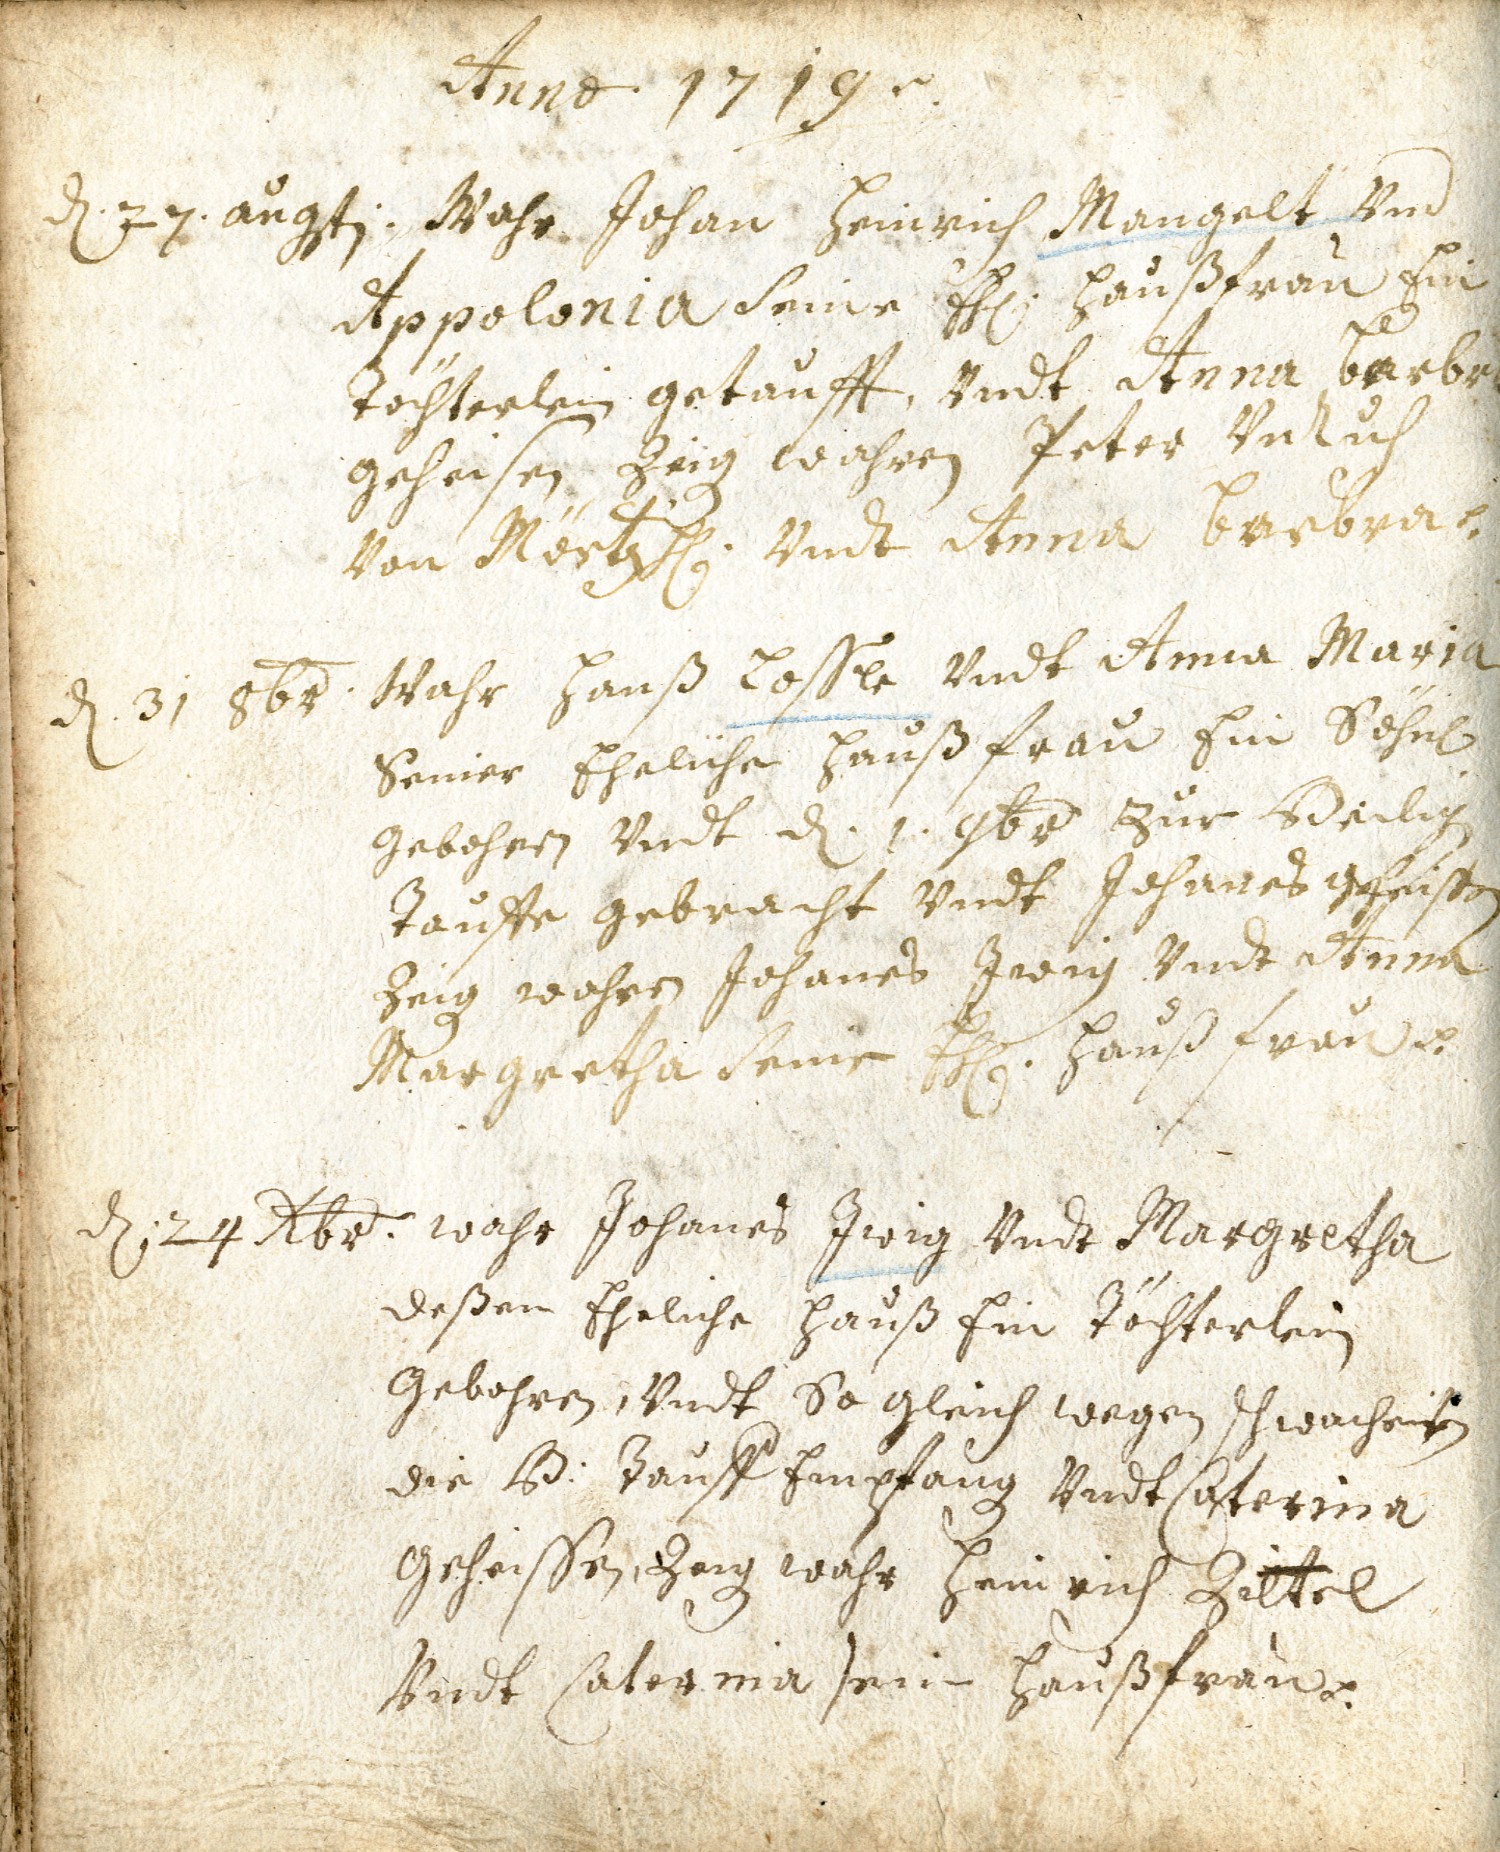 Anno 1719
d. 27. augstj. Wahr Johan Heinrich Mangelt Vnd
Appolonia seine Ehl. Haußfrau Ein
Töchterlein getaufft, Vndt Anna barbra
geheisen Zeig wahren Peter
Von Vndt Anna barbra
d. 31 8br. Wahr Hanß Lossle Vndt Anna Maria
Seiner Eheliche Hauß frau Ein Söhnl
gebohren Vndt d. 1. 9br Zur Heilig
Tauffe gebracht Vndt Johanes geheisen
Zeig wahren Johanes Zweig Vndt Anna
Margretha seine Ehl. Hauß frau
d. 24 Xbr. wahr Johanes Zweig Vndt Margretha
deßen Eheliche Hauß Ein Töchterlein
Gebohren, Vndt So gleich wegen schwacheiten
die H: Tauff Empfang Vndt Caterina
Geheissen, Zeig wahr Heinrich Zittel
Vndt Caterina sein Haußfrau